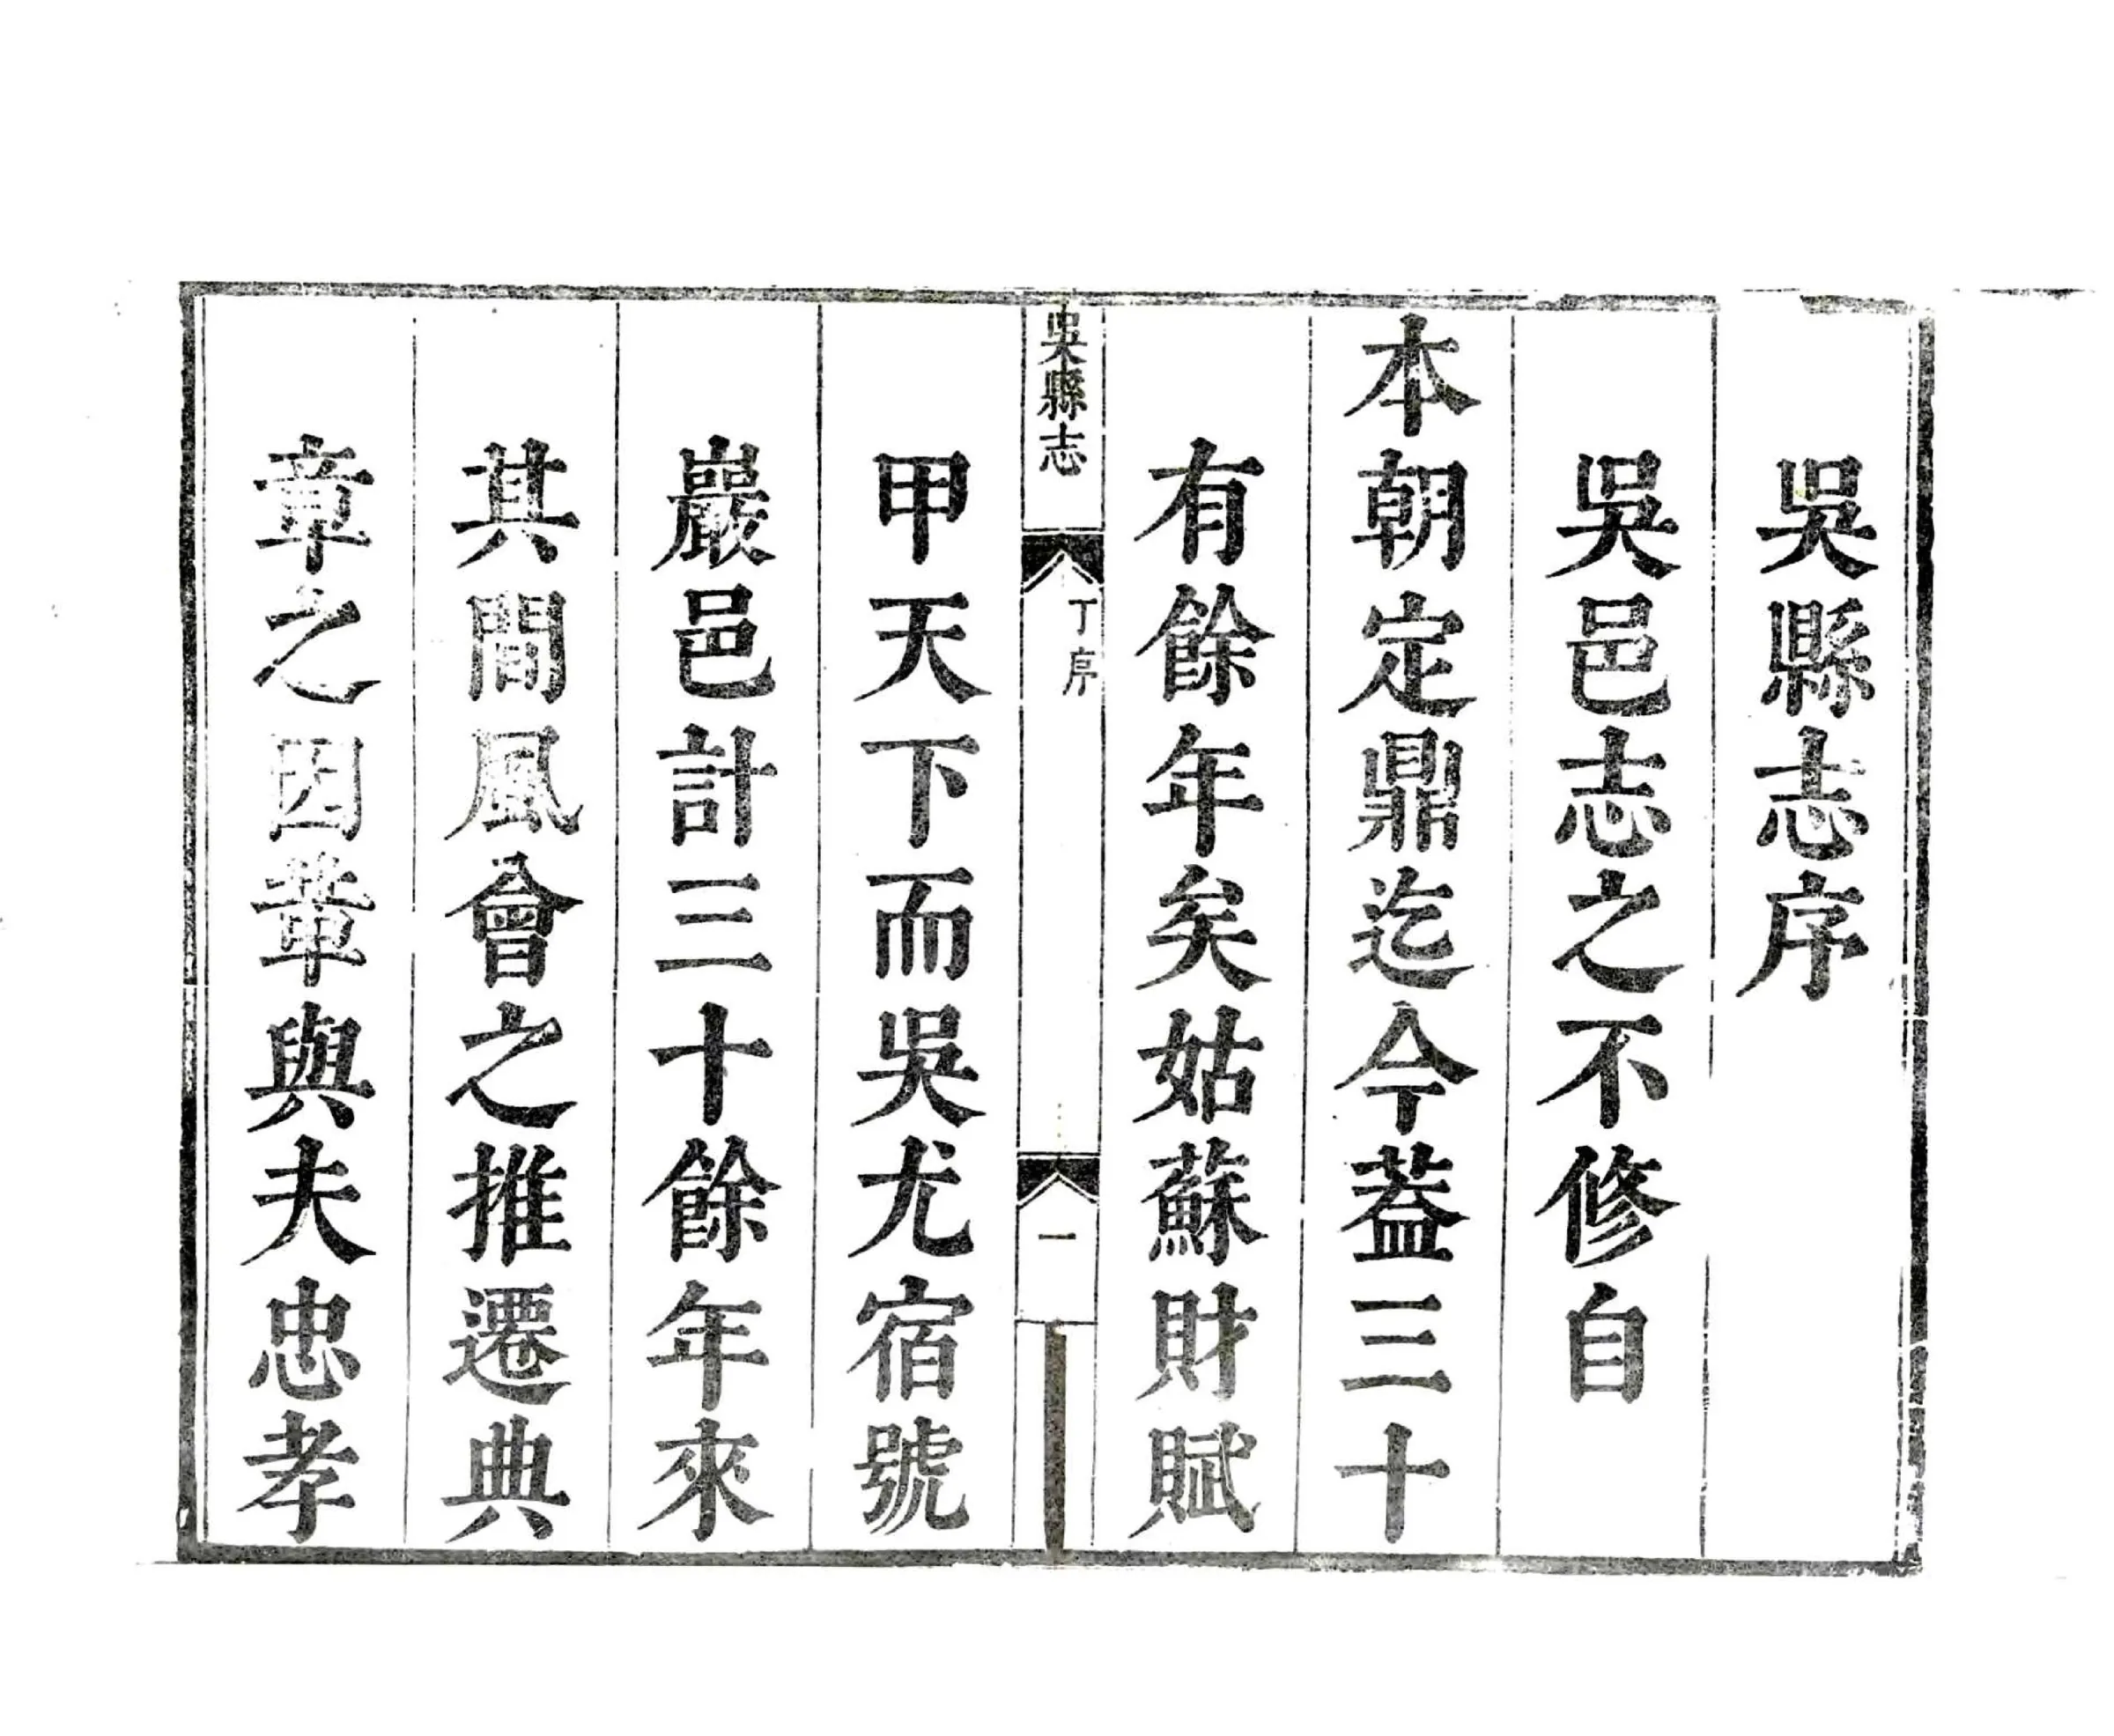 吳縣志序
吳邑志之不修自
本朝定鼎迄今葢三十
有餘年矣姑蘇財賦
吳縣志
丁序
一
甲天下而吳尤宿號
巖邑計三十餘年來
其間風會之推遷典
章之因革與夫忠孝